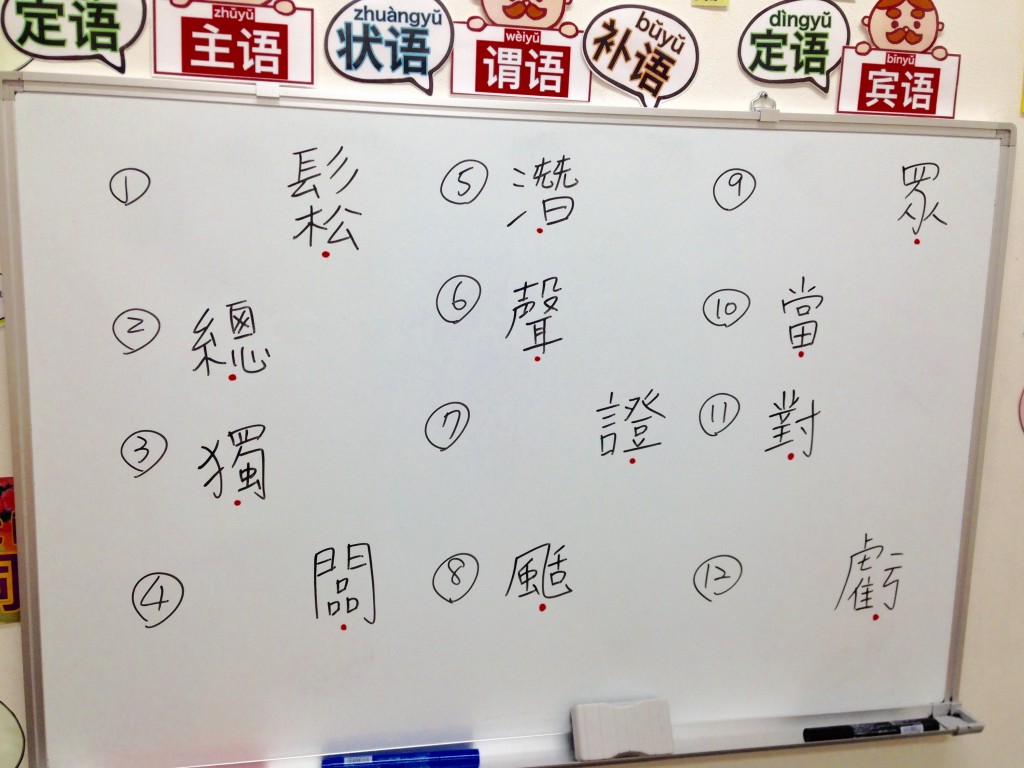 定语
zhǔyǔ
主语
zhuàngyǔ
状语
wèiyǔ
谓语
bǔyǔ
补语
dìngyǔ
定语
bīnyǔ
宾语
① 鬆
② 總
③ 獨
④ 闆
⑤ 潛
⑥ 聲
⑦ 證
⑧ 颳
⑨ 眾
⑩ 當
⑪ 對
⑫ 虧